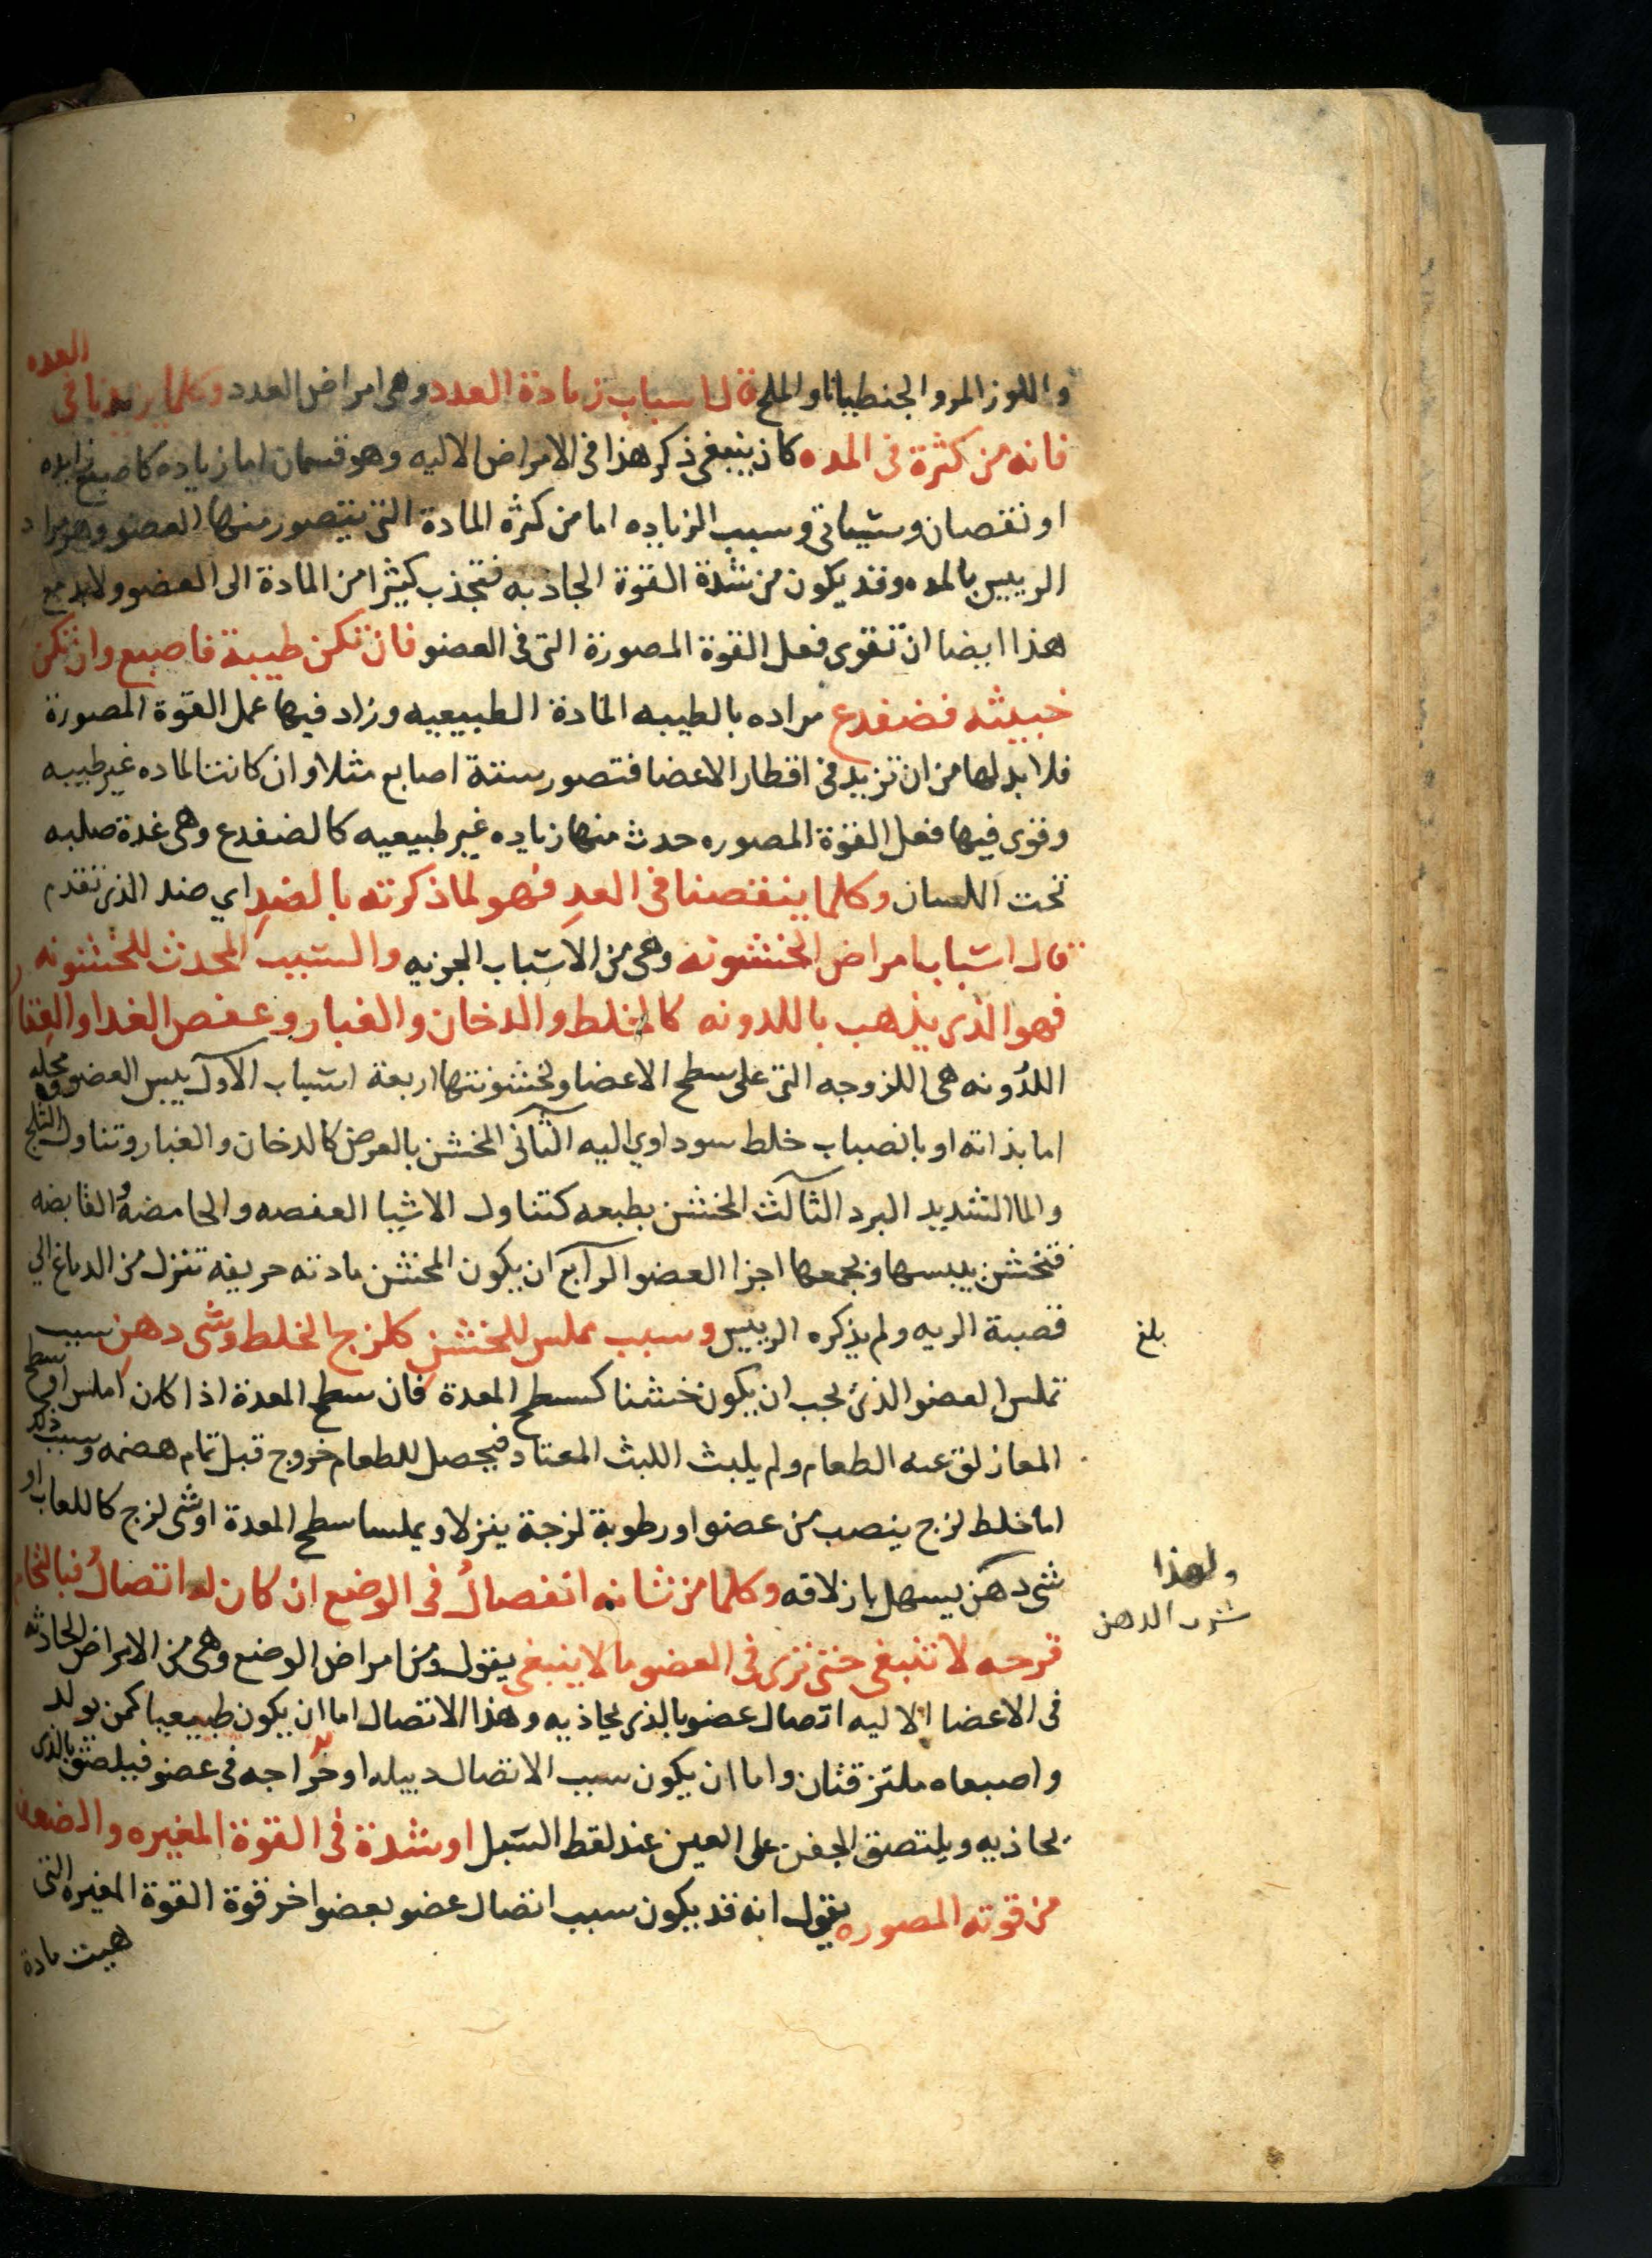 واللوز المر والجنطيانا والملح قال اسباب زيادة العدد وهى امراض العدد وكلما يزيدنا فى العده
فانه من كثرة فى المده كان ينبغى ذكر هذا فى الامراض الاليه وهو قسمان اما زياده كاصبع زايده
او نقصان وسياتى وسبب الزياده اما من كثره المادة التى يتصور منها العضو وهو مراد
الرييس بالمده وقد يكون من شدة القوة الجاذبه فتجذب كثيرا من المادة الى العضو ولابد مع
هذا ايضا ان تقوى فعل القوة المصورة التى فى العضو فان تكن طيبة فاصبع وان تكن
خبيثه فضفدع مراده بالطيبه المادة الطبيعيه وزاد فيها عمل القوة المصورة
فلا بد لها من ان تزيد فى اقطار الاعضا فتصور ستة اصابع مثلا وان كانت الماده غير طيبه
وقوى فيها فعل القوة المصوره حدث منها زياده غير طبيعيه كالضفدع وهى غدة صلبه
تحت اللسان وكلما ينقصنا فى العد فهو لما ذكرته بالضد اي ضد الذى تقدم
قال اسباب امراض الخشونه وهى من الاسباب الجزيه والسبب المحدث للخشونه
فهو الذى يذهب باللدونه كالخلط والدخان والغبار وعفص الغدا والعقار
اللدونه هى اللزوجه التى على سطح الاعضا ولخشونتها اربعة اسباب الاول يبس العضو ومحله
اما بذاته او بانصباب خلط سوداوي اليه الثانى المخشن بالعرض كالدخان والغبار وتناول الثلج
والما الشديد البرد الثالث المخشن بطبعه كتناول الاشيا العفصه والحامضة القابضه
فتخشن بيبسها وبجمعها اجزا العضو الرابع ان يكون المخشن مادته حريفه تنزل من الدماغ الي
قصبة الريه ولم يذكره الرييس وسبب مملس للخشن كلزج الخلط وشى دهن سبب
بلغ
تملس العضو الذى يجب ان يكون خشنا كسطح المعدة فان سطح المعدة اذا كان املس او سطح
المعا زلق عنه الطعام ولم يلبث اللبث المعتاد فيحصل للطعام خروج قبل تمام هضمه وسبب ذلك
اما خلط لزج ينصب من عضو او رطوبة لزجة ينزلا ويملسا سطح المعدة او شى لزج كاللعاب او
شى دهن يسهل بازلاقه وكلما من شانه انفصال فى الوضع ان كان له اتصال فبالتحام
ولهذا
شرب الدهن
قرحه لا تنبغى حتى ترى فى العضو ما لا ينبغى يقول ومن امراض الوضع وهى من الامراض الحادثه
فى الاعضا الاليه اتصال عضو بالذى يحاذيه وهذا الاتصال اما ان يكون طبيعيا كمن يولد
واصبعاه ملتزقتان واما ان يكون سبب الاتصال دبيله او خراجه فى عضو فيلصق بالذى
يحاذيه ويلتصق الجفن على العين عند لقط السبل او شدة فى القوة المغيره والضعف
من قوته المصوره يقول انه قد يكون سبب اتصال عضو بعضو اخر قوة القوة المغيره التى
هيت مادة